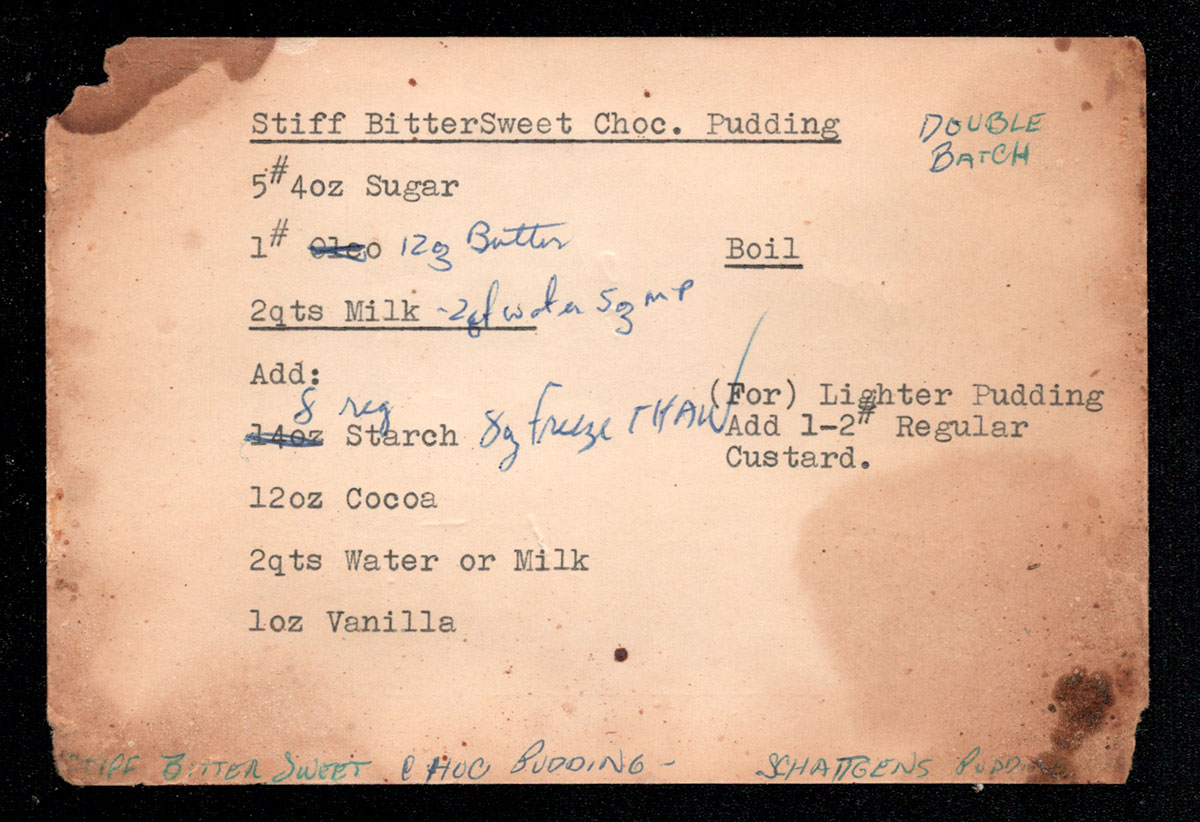 Stiff BitterSweet Choc. Pudding
DOUBLE
BATCH
5# 4oz Sugar
1# Oleo 12oz Butter
Boil
2qts Milk -2qt water 5oz MP
Add:
8 reg
14oz Starch 8oz freeze THAW
(For) Lighter Pudding
Add 1-2# Regular
Custard.
12oz Cocoa
2qts Water or Milk
1oz Vanilla
STIFF BITTER SWEET CHOC PUDDING - SCHATTGENS PUDDING